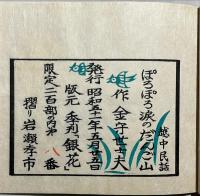 越中民話
ぽろぽろ涙のだんご山
作 金守世士夫
発行 昭和五十一年五月廿五日
版元 季刊「銀花」
限定二百部の内第 番
摺り 岩瀬孝市